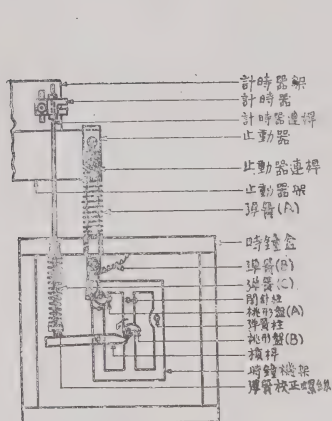 計時器架
計時器
計時器連桿
止動器
止動器連桿
止動器架
彈簧(A)
時鐘盒
彈簧(B)
彈簧(C)
開針柱
桃形盤(A)
彈簧柱
桃形盤(B)
橫桿
時鐘機架
彈簧校正螺絲